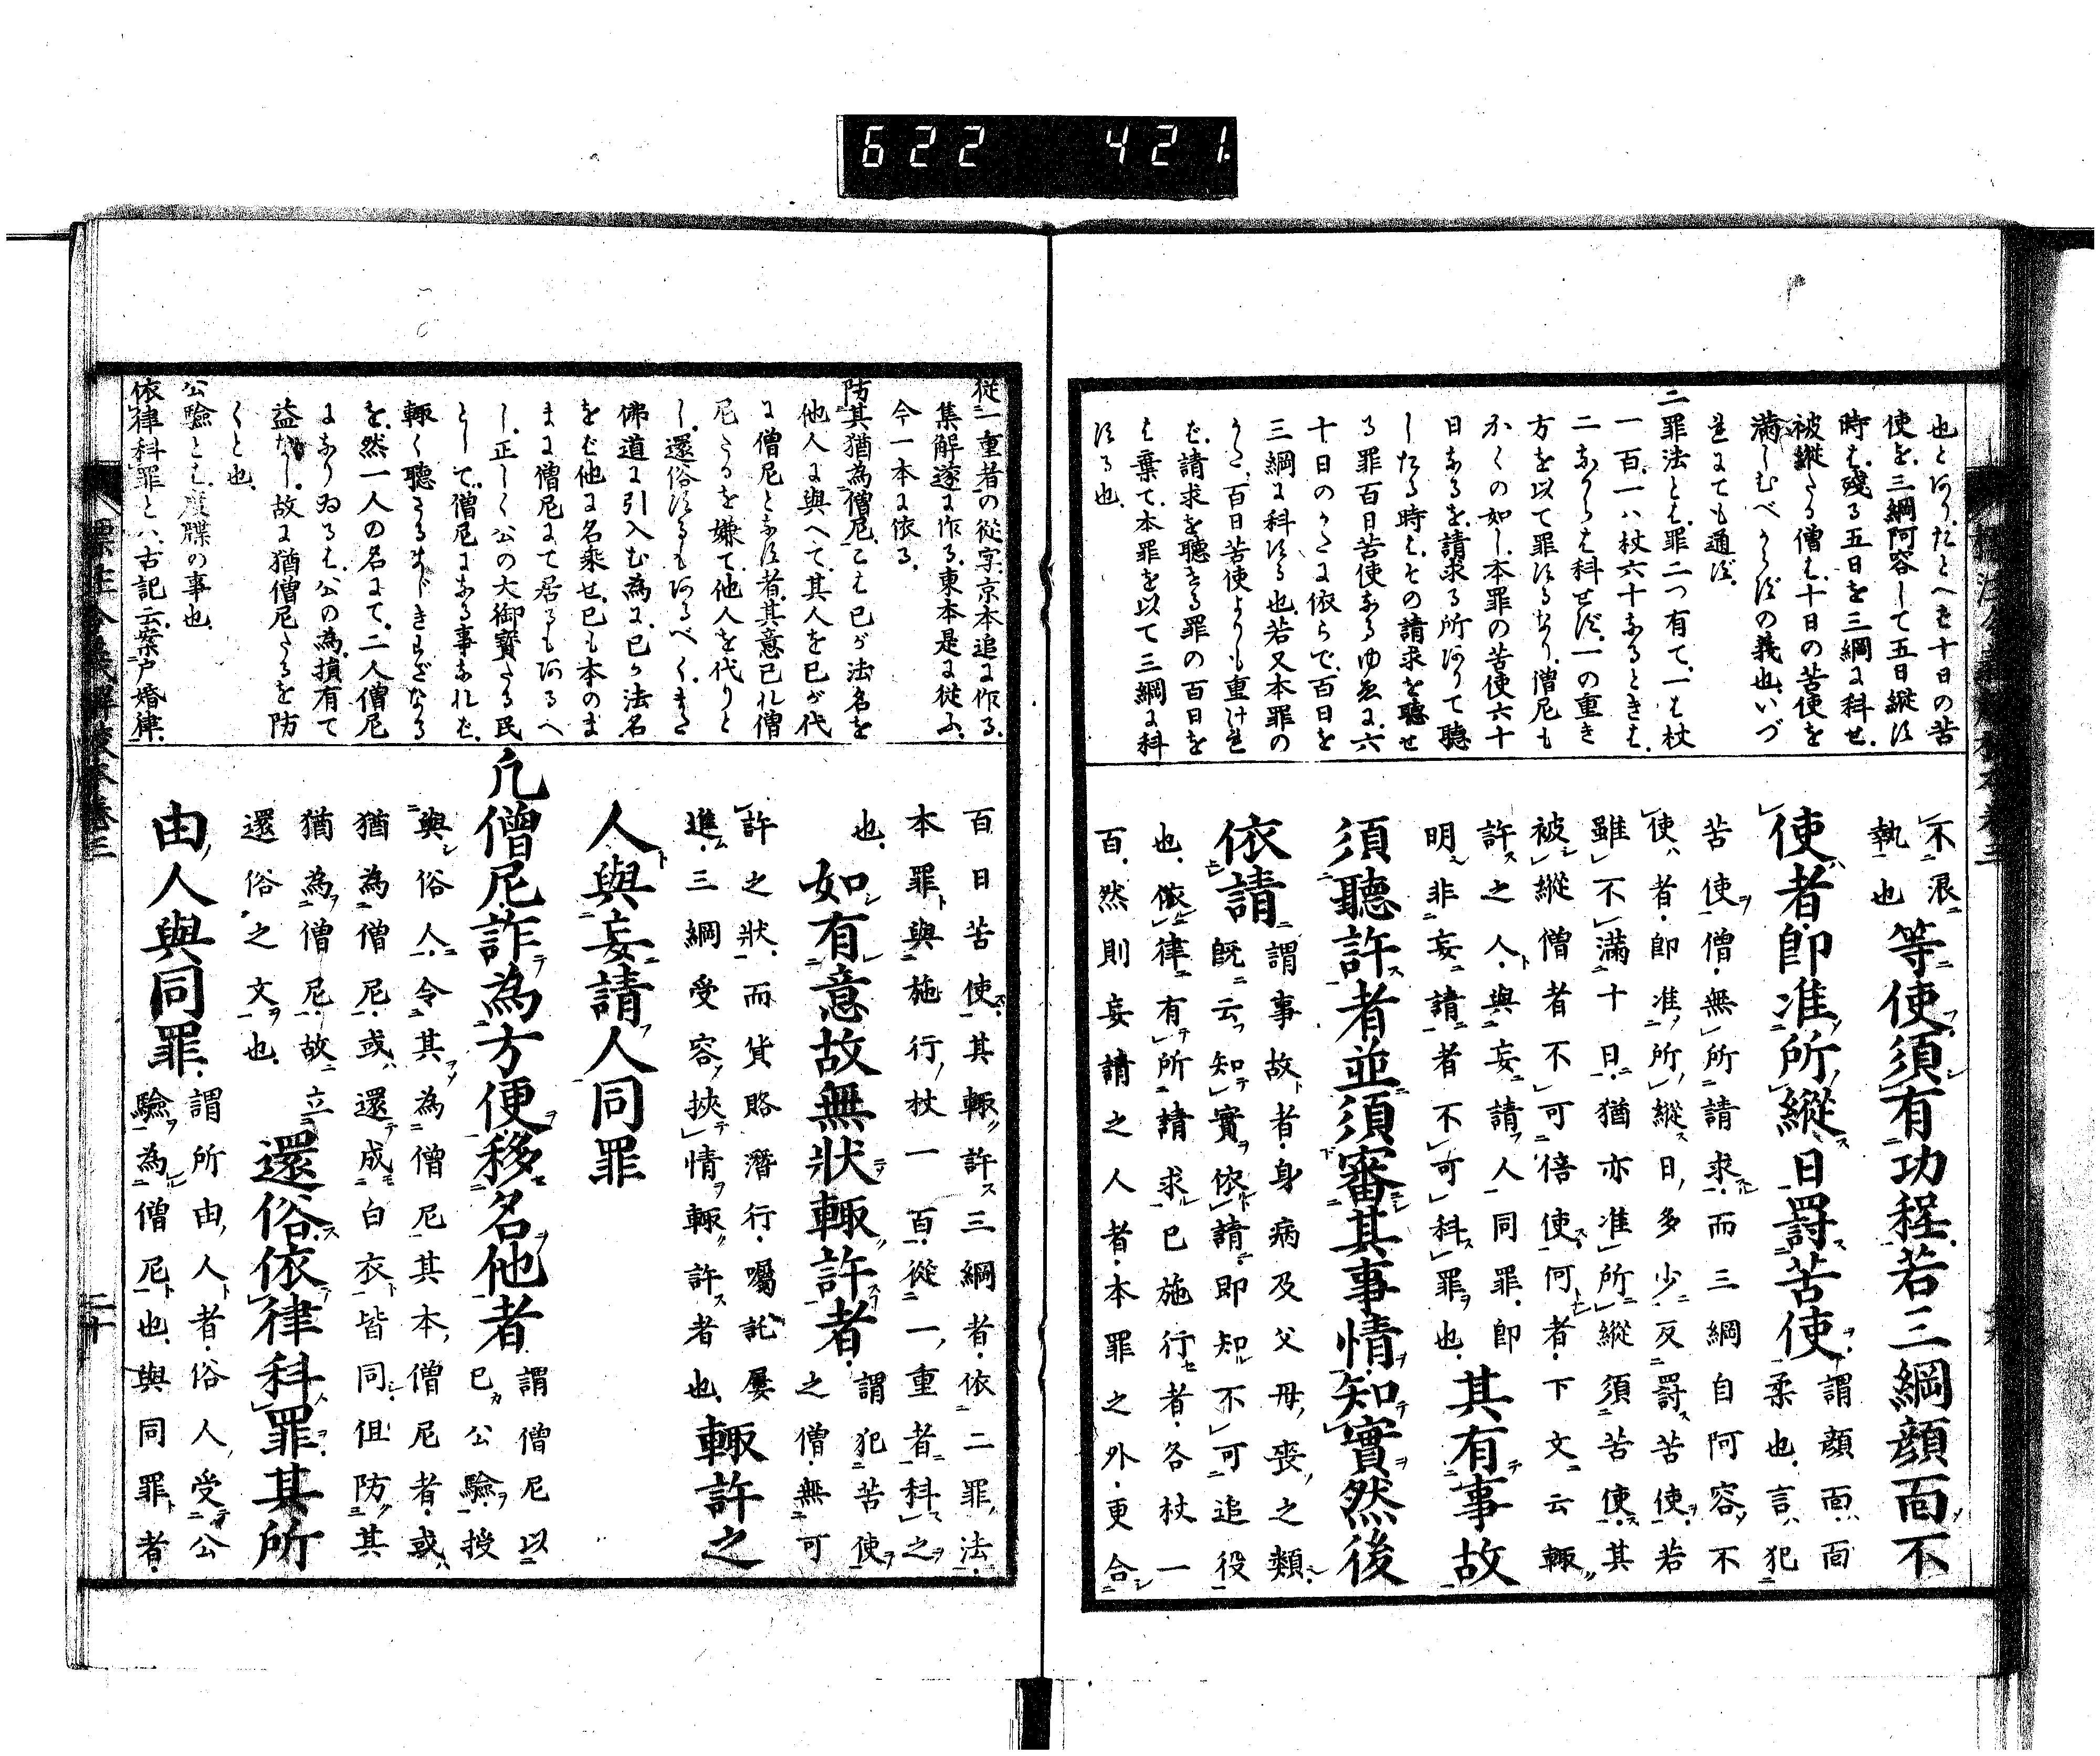 622 421.
也とあり。たとへば十日の苦
使を、三綱阿容して五日縦す
時は、殘る五日を三綱に科せ、
被縦たる僧は、十日の苦使を
滿しむべからずの義也、いづ
れにても通ず。
二罪法とは、罪二つ有て、一は杖
一百、一ハ杖六十なるときは、
二ながらは科せず、一の重き
方を以て罪するなり、僧尼も
かくの如し、本罪の苦使六十
日なるを、請求る所ありて聽
したる時は、その請求を聽せ
る罪百日苦使なるゆゑに、六
十日のかたに依らで、百日を
三綱に科する也、若又本罪の
かた、百日苦使よりも重けれ
ば、請求を聽せる罪の百日を
は棄て、本罪を以て三綱に科
する也、
不浪
執也
等使須有功程若三綱顔面不
使者即准所縱日罸苦使
謂顔面面
柔也言犯
苦使僧無所請求而三綱自阿容不
使者即准所縱日多少反罸苦使若
雖不滿十日猶亦准所縱須苦使其
被縱僧者不可倍使何者下文云輙
許之人與妄請人同罪即
明非妄請者不可科罪也
其有事故
須聽許者並須審其事情知實然後
依請
謂事故者身病及父母喪之類
既云知實依請即知不可追役
也依律有所請求已施行者各杖一
百然則妄請之人者本罪之外更合
從一重者の從字、京本追に作る、
集解遂に作る、東本是に從ふ、
今一本に依る。
防其猶為僧尼とは已が法名を
他人に與へて、其人を已が代
に僧尼となす者、其意已れ僧
尼たるを嫌て、他人を代りと
し、還俗するもあるべく、また
佛道に引入む為に、已が法名
をば他に名乘せ、已も本のま
まに僧尼にて居るもあるへ
し、正しく公の大御寳たる民
として、僧尼になる事なれば、
輙く聽さるまじきわざなる
を、然一人の名にて、二人僧尼
になりゐるは、公の為、損有て
益なし、故に猶僧尼たるを防
くと也、
公驗とは、度牒の事也、
依律科罪とハ、古記云、案戸婚律、
百日苦使其輙許三綱者依二罪法
本罪與施行杖一百從一重者科之
也
如有意故無狀輙許者
謂犯苦使
之僧無可
許之狀而貨賂潛行囑託屢
進三綱受容挾情輙許者也
輙許之
人與妄請人同罪
凡僧尼詐為方便移名他者
謂僧尼以
已公驗授
與俗人令其為僧尼其本僧尼者或
猶為僧尼或還成白衣皆同但防其
猶為僧尼故立
還俗之文也
還俗依律科罪其所
由人與同罪
謂所由人者俗人受公
驗為僧尼也與同罪者
二十